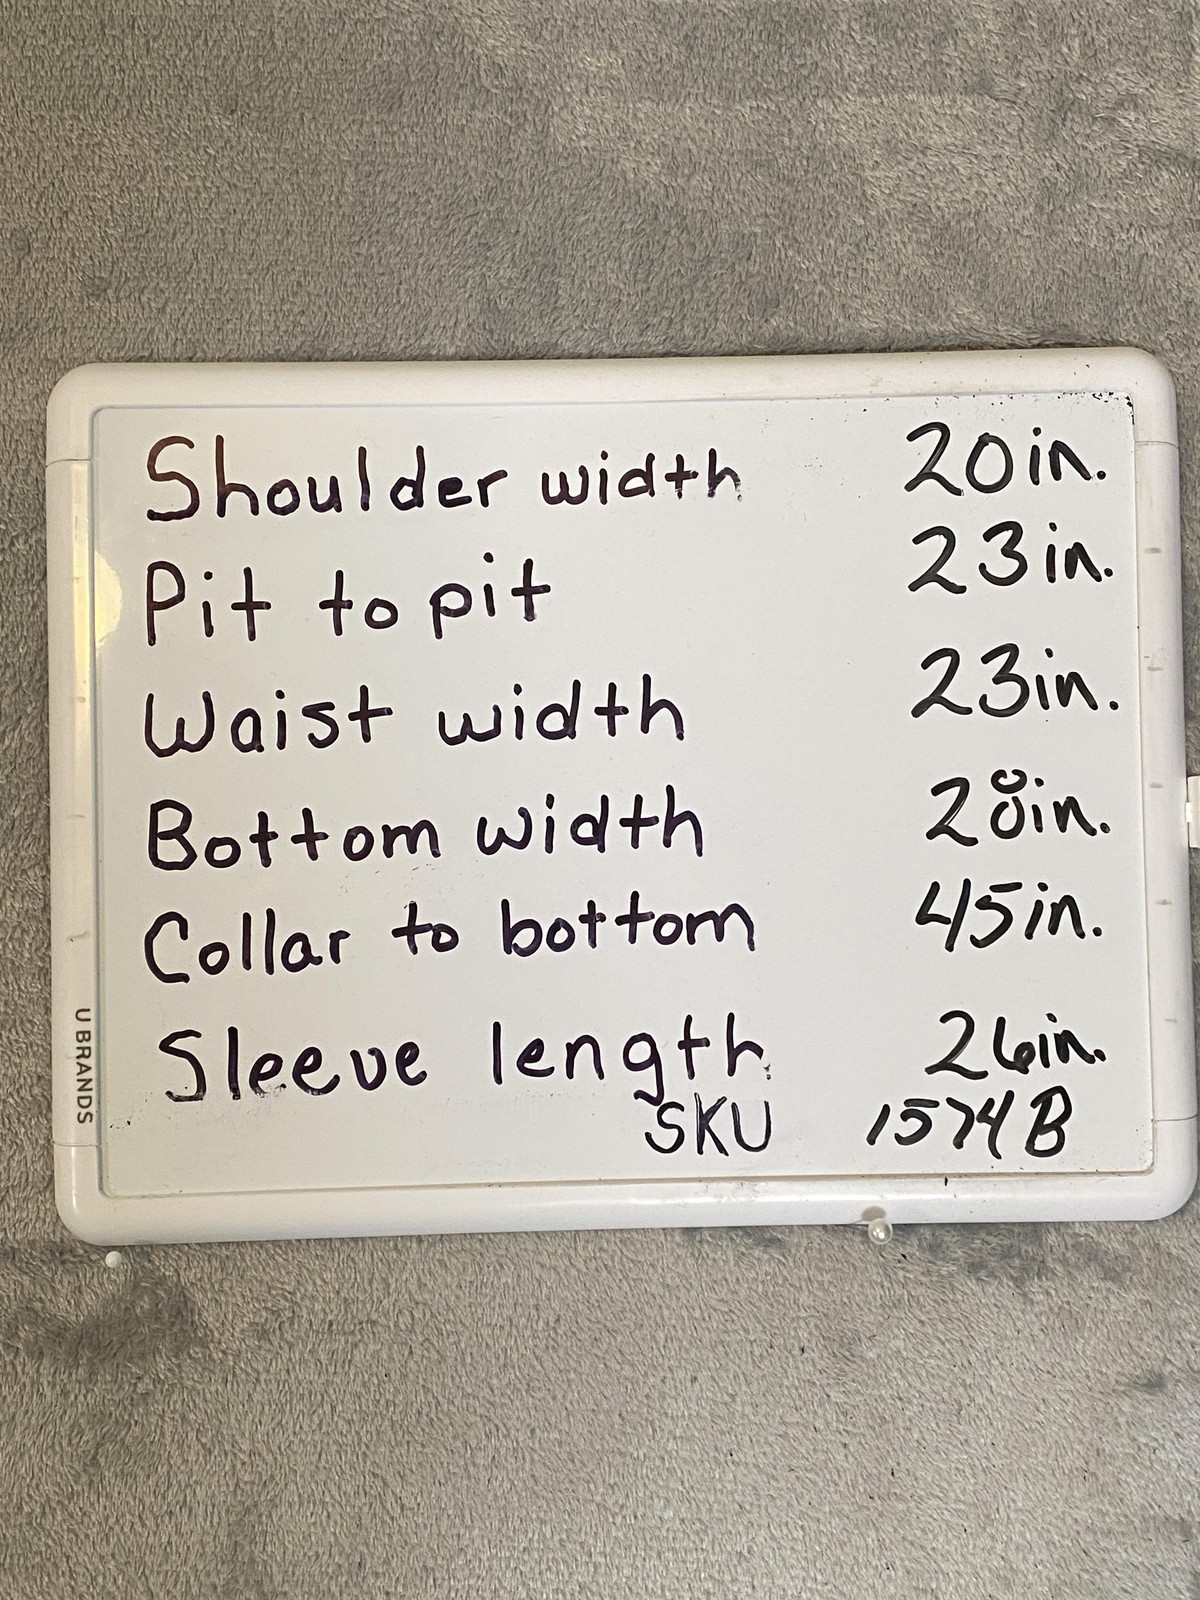 Shoulder width 20in.
Pit to pit 23in.
Waist width 23in.
Bottom width 28in.
Collar to bottom 45in.
Sleeve length 26in.
SKU 1574B
U BRANDS